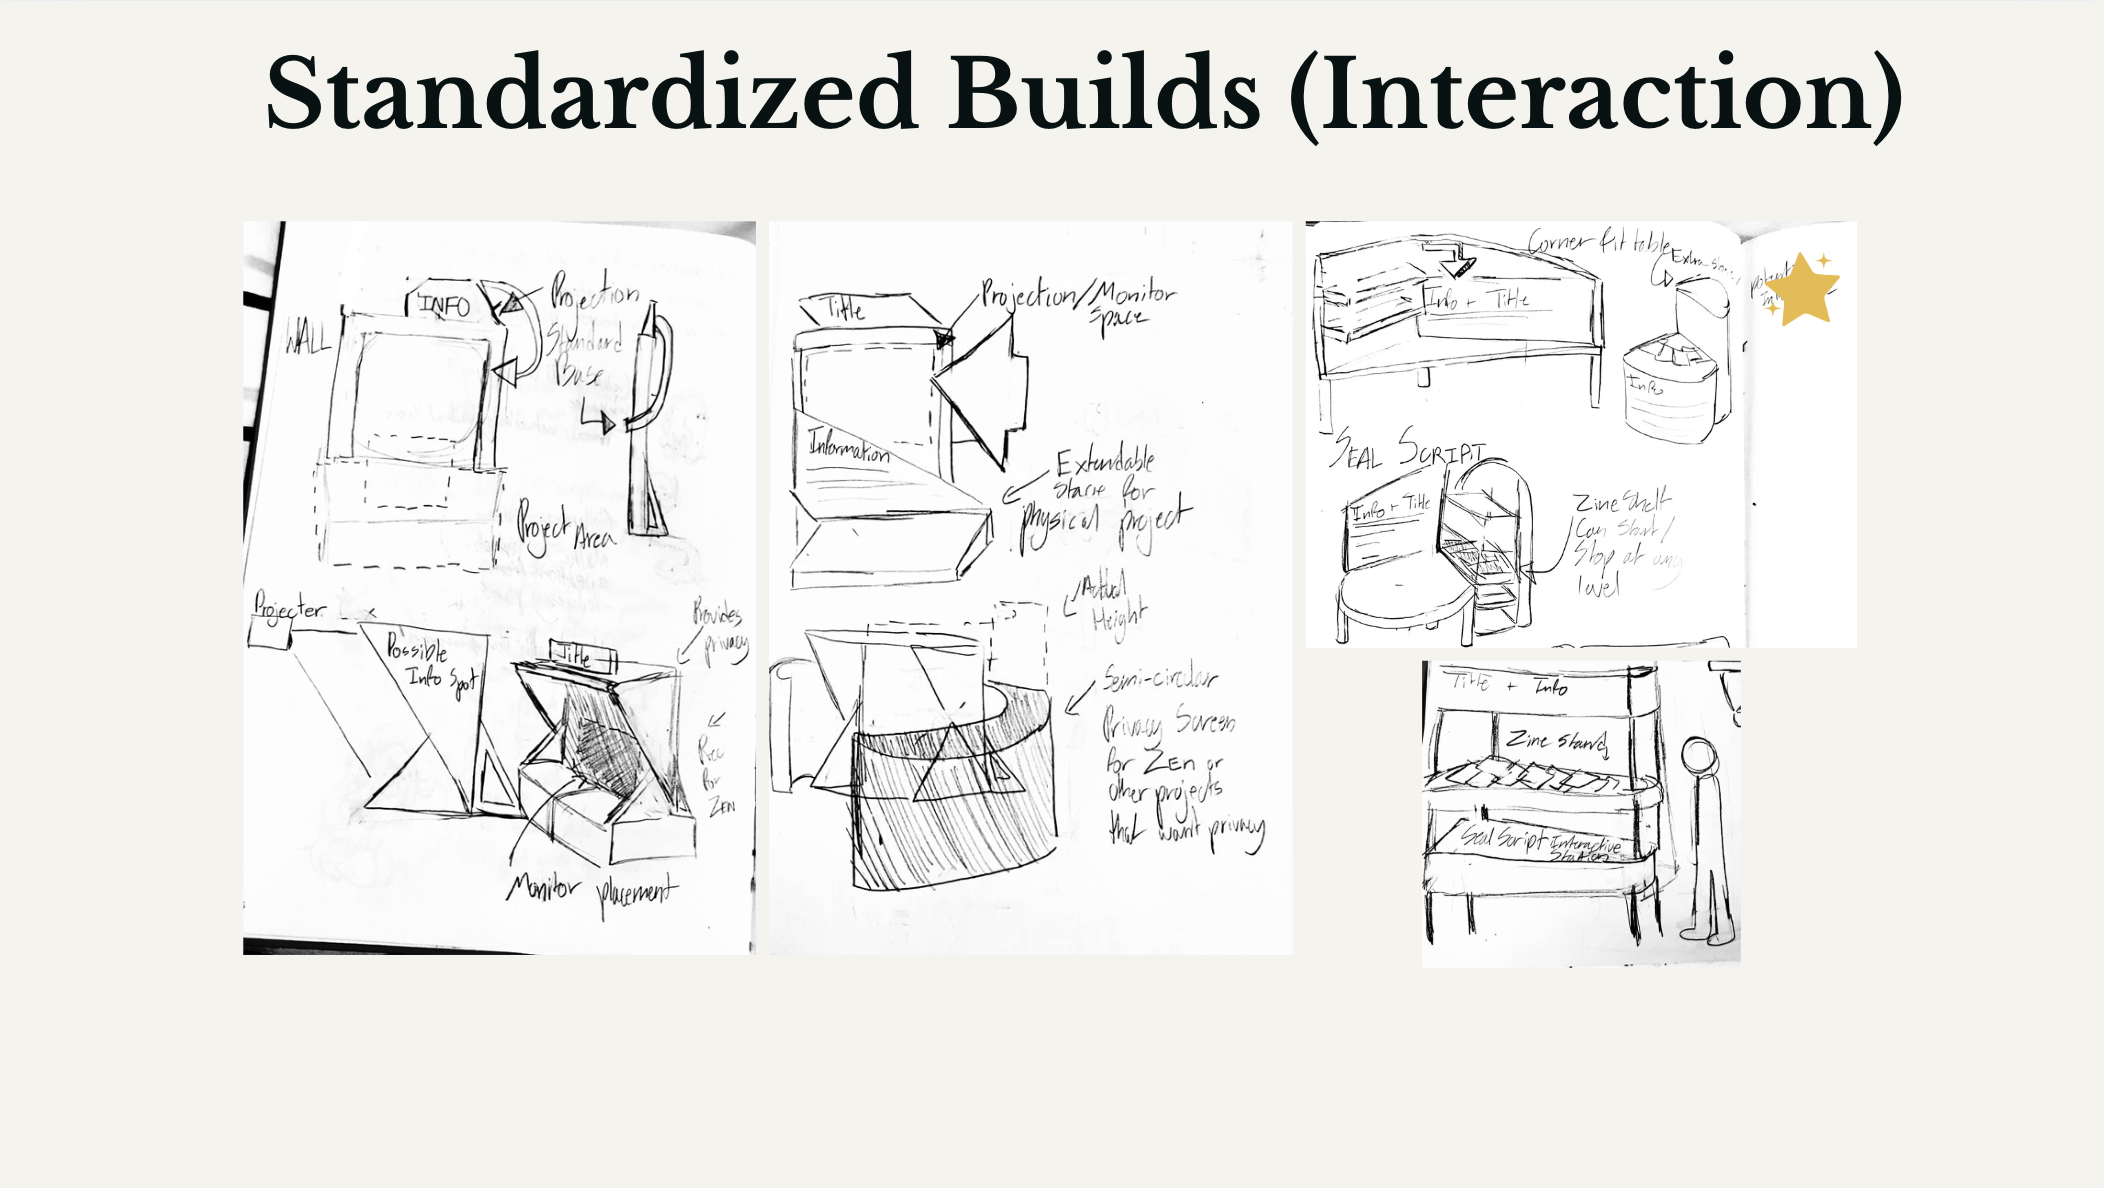 Standardized Builds (Interaction)
INFO
Projection
Standard
Base
WALL
Project Area
Projecter
Possible
Info Spot
Title
Provides
privacy
For
ZEN
Monitor placement
Title
Projection/Monitor
Space
Information
Extendable
for
physical project
Actual
Height
Semi-circular
Privacy Screen
for ZEN or
other projects
that want privacy
Corner fit table
Extra
Info + Title
Info
SEAL SCRIPT
Info + Title
Zine Shelf
Can Start/
Stop at any
level
Title + Info
Zine Stand
Seal Script Interactive
Station